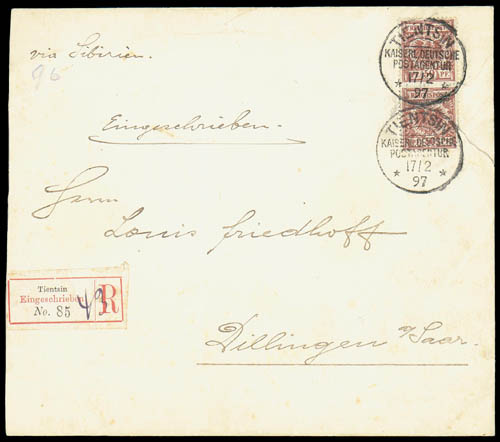 via Sibirien.
96
TIENTSIN
KAISERL. DEUTSCHE
POSTAGENTUR
* 17/2 *
97
TIENTSIN
KAISERL. DEUTSCHE
POSTAGENTUR
* 17/2 *
97
Eingeschrieben.
Herrn
Louis Friedhoff
Tientsin
Eingeschrieben
No. 85
R
Dillingen a/Saar.